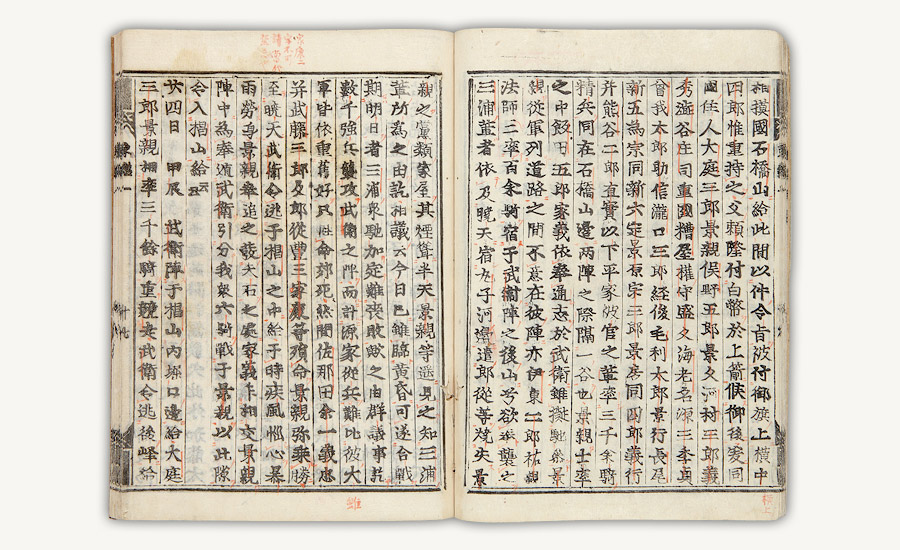 相摸國石橋山給此間以件令旨被付御旗上横中
四郎惟重持之又頼隆付白幣於上箭候御後爰同
國住人大庭三郎景親俣野五郎景久河村三郎義
秀澁谷庄司重國糟屋權守盛久海老名源三季貞
曾我太郎助信瀧口三郎経俊毛利太郎景行長尾
新五為宗同新六定景原宗三郎景房同四郎義行
并熊谷二郎直實以下平家被官之輩率三千余騎
精兵同在石橋山邊兩陣之際隔一谷也景親士卒
之中飯田五郎家義依奉通志於武衛雖擬馳参景
親従軍列道路之間不意在彼陣亦伊東二郎祐親
法師三率百余騎宿于武衛陣之後山兮欲奉襲之
三浦輩者依及晩天宿丸子河邊遣郎従等焼失景
親之黨類家屋其煙聳半天景親等遥見之知三浦
輩所為之由訖相議云今日已雖臨黄昏可遂合戦
期明日者三浦衆馳加定難喪敗歟之由群議事訖
數千強兵襲攻武衛之陣而計源家從兵難比彼大
軍皆依重舊好只命郊死然間佐那田余一義忠
并武藤三郎及郎従豊三家康等殞命景親弥乗勝
至曉天武衛令逃于椙山之中給于時疾風悩心暴
雨勞身景親奉追之發矢石之處家義乍相交景親
陣中為奉遁武衛引分我衆六別戦于景親以此隙
令入椙山給云云
廿四日 甲辰 武衛陣于椙山内堀口邊給大庭
三郎景親相率三千餘騎重競走武衛令逃後峰給
十七
雖